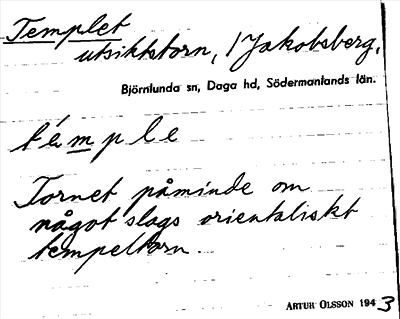 Templet
utsiktstorn, / Jakobsberg,
Björnlunda sn, Daga hd, Södermanlands län.
témple
Tornet påminde om
något slags orientaliskt
tempeltorn.
ARTUR OLSSON 1943